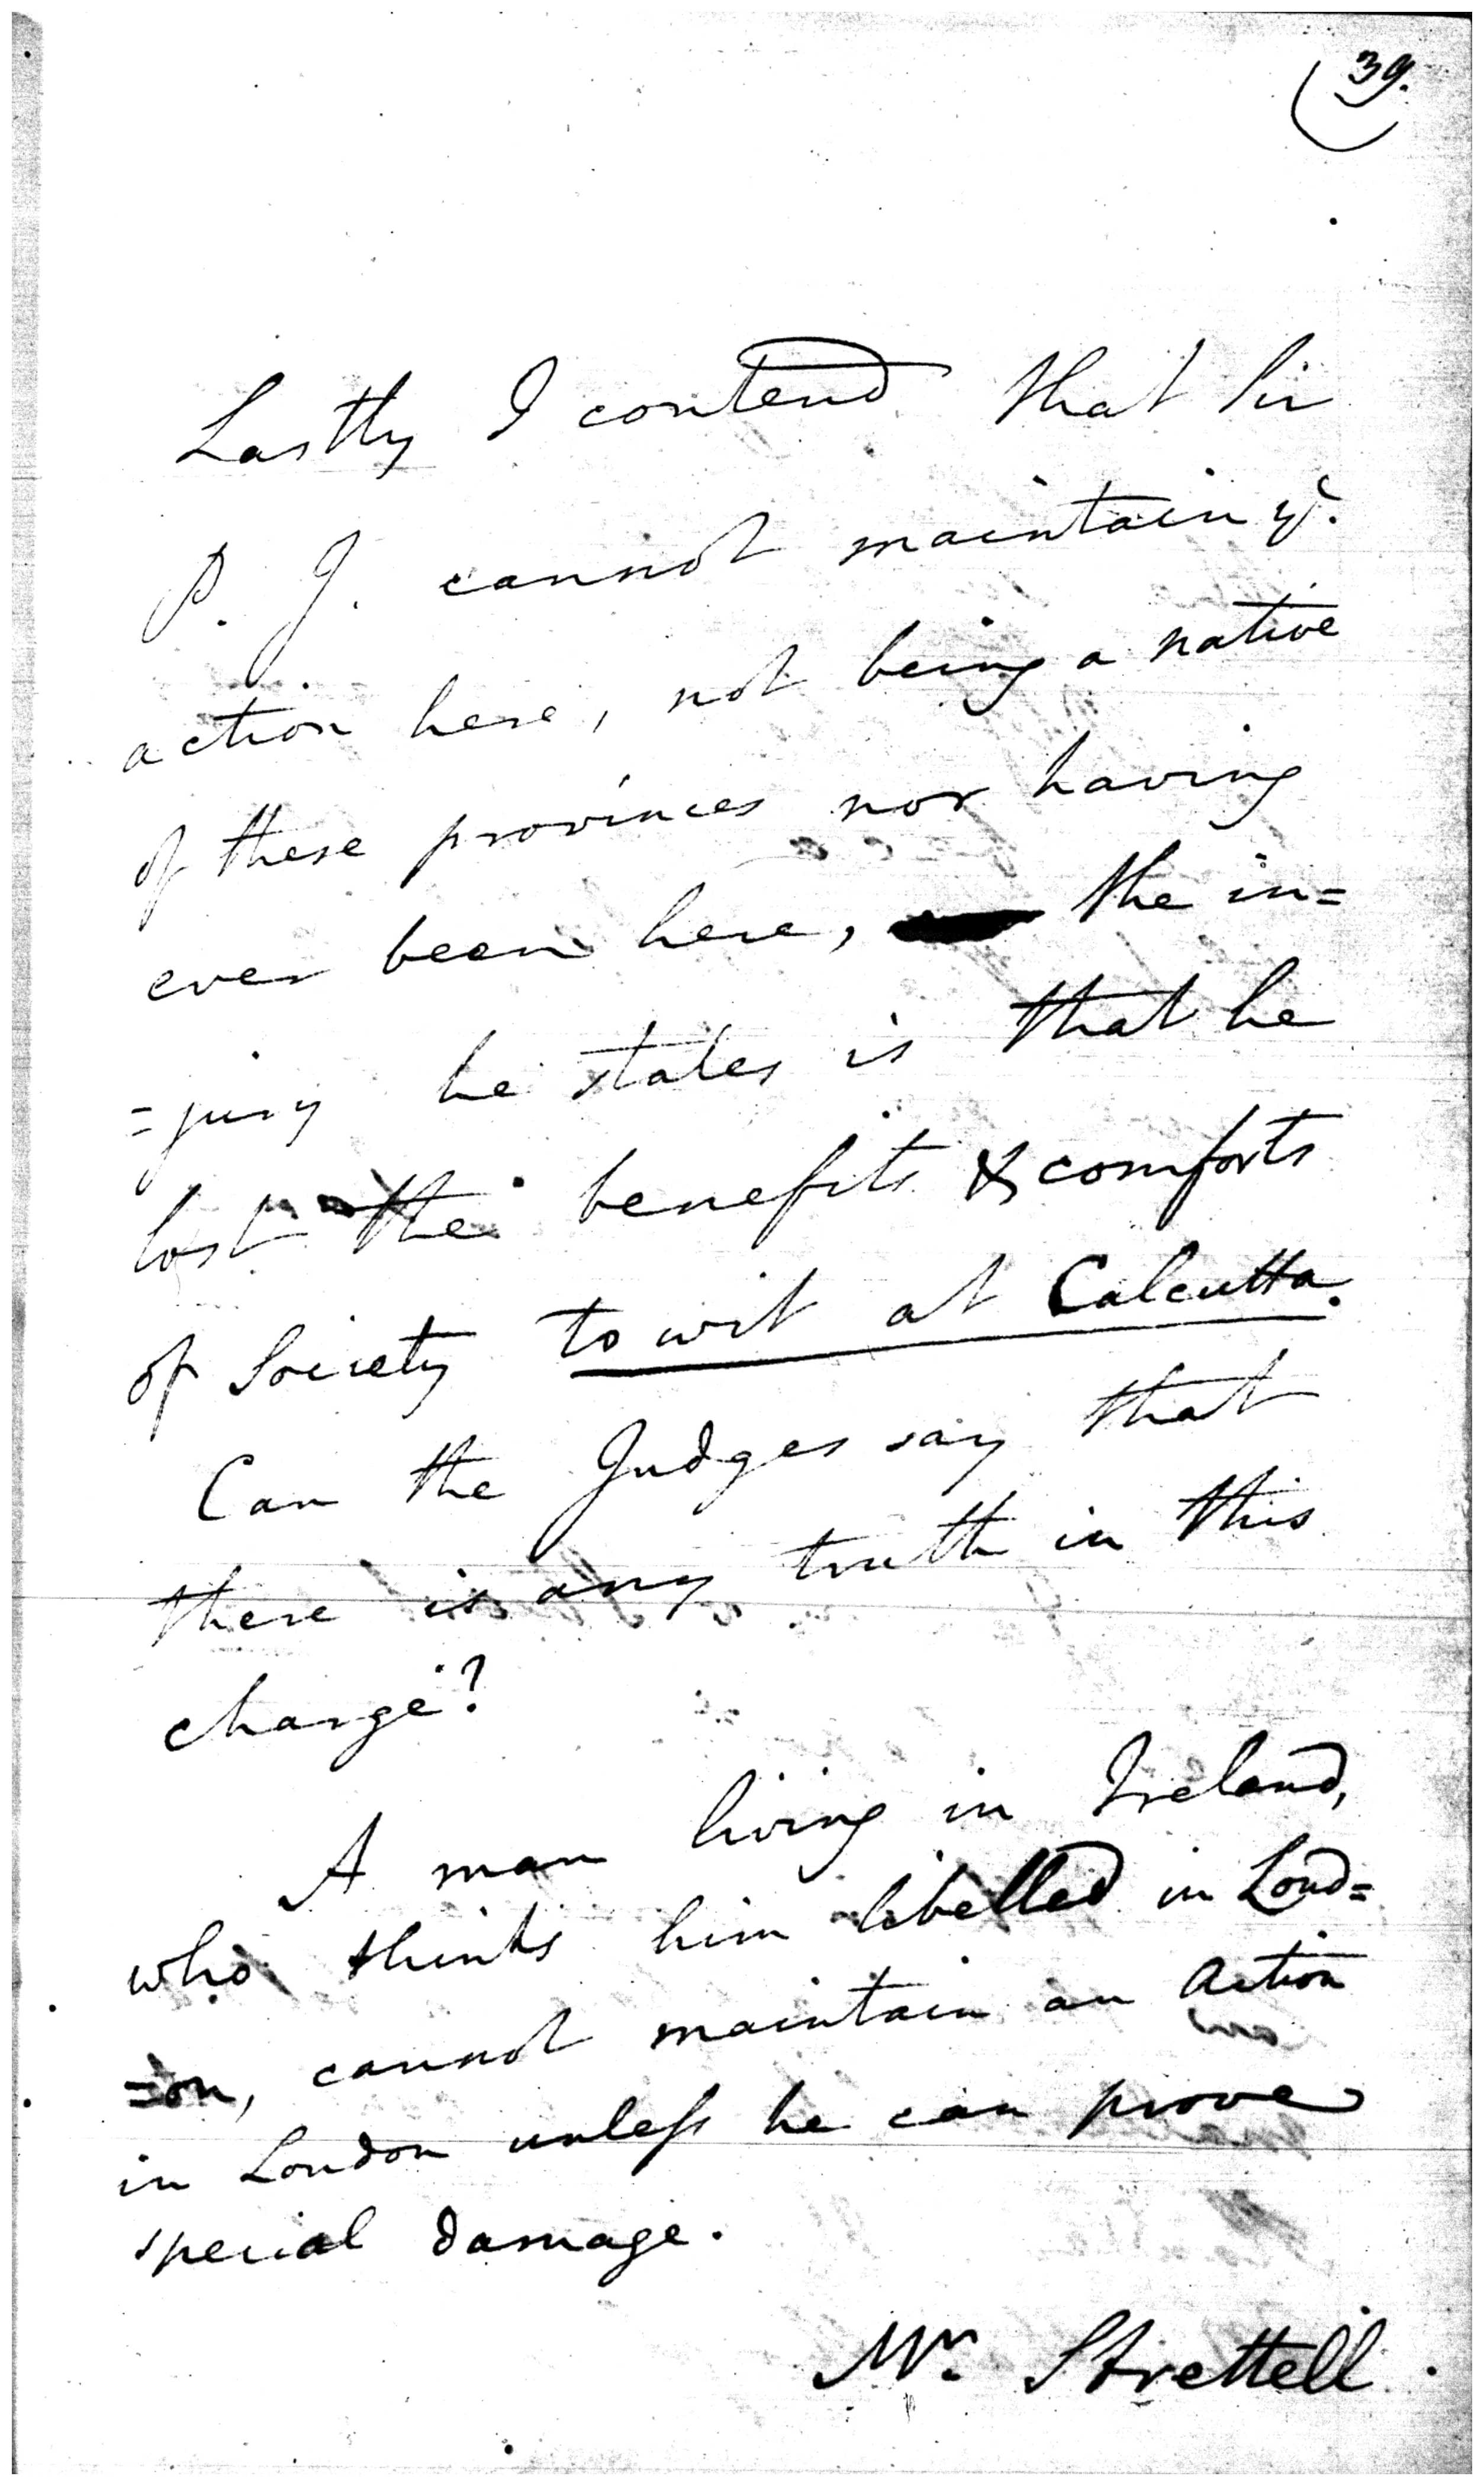 39.
Lastly I contend that Sir
P. J. cannot maintain yr.
action here, not being a native
of these provinces nor having
ever been here, the in=
=jury he states is that he
lost the benefits & comforts
of Society to wit at Calcutta.
Can the Judges say that
there is any truth in this
charge?
A man living in Ireland,
who thinks him libelled in Lond=
=on, cannot maintain an action
in London unless he can prove
special damage.
Mr. Strettell.